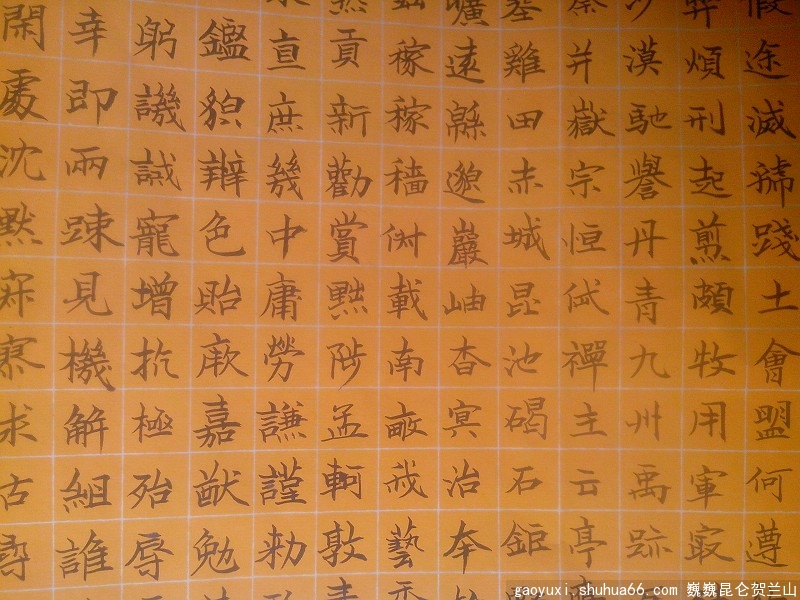 假途滅虢踐土會盟何遵
弊煩刑起翦頗牧用軍冣
沙漠馳譽丹青九州禹跡
秦并嶽宗恒岱禪主云亭
塞雞田赤城昆池碣石鉅
曠遠綿邈巖岫杳冥治本
稼稼穡俶載南畝我藝黍
熟貢新勸賞黜陟孟軻敦素
直庶幾中庸勞謙謹勑
鑑貌辯色貽厥嘉猷勉
躬譏誡寵增抗極殆辱
幸即兩踈見機解組誰
閑處沈默寂寥求古尋
gaoyuxi.shuhua66.com 巍巍昆仑贺兰山